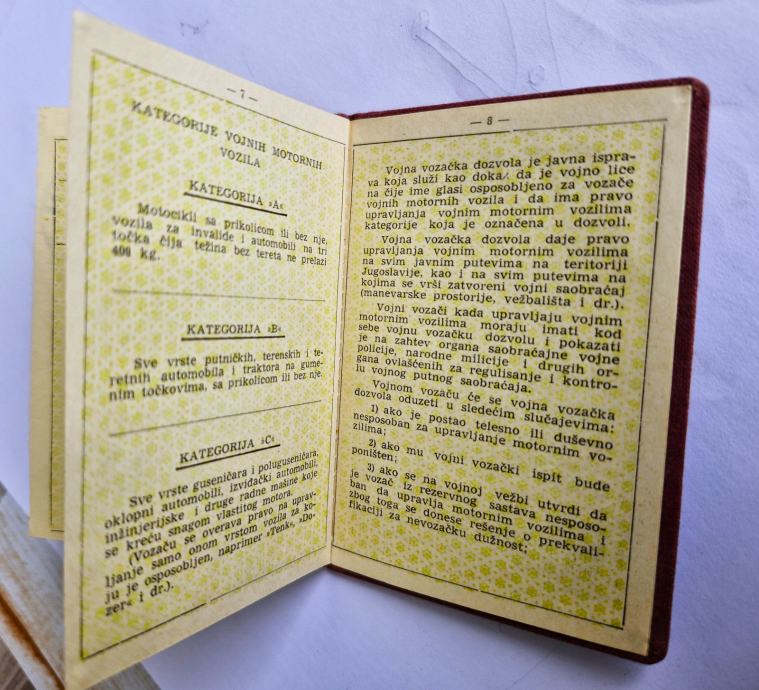 — 7 —
KATEGORIJE VOJNIH MOTORNIH
VOZILA
KATEGORIJA »A«
Motocikli sa prikolicom ili bez nje,
vozila za invalide i automobili na tri
točka čija težina bez tereta ne prelazi
400 kg.
KATEGORIJA »B«
Sve vrste putničkih, terenskih i te-
retnih automobila i traktora na gume-
nim točkovima, sa prikolicom ili bez nje.
KATEGORIJA »C«
Sve vrste guseničara i poluguseničara,
oklopni automobili, izviđački automobili,
inžinjerijske i druge radne mašine koje
se kreću snagom vlastitog motora.
(Vozaču se overava pravo na uprav-
ljanje samo onom vrstom vozila za ko-
ju je osposobljen, naprimer »Tenk«, »Do-
zer« i dr.).
— 8 —
Vojna vozačka dozvola je javna ispra-
va koja služi kao dokaz da je vojno lice
na čije ime glasi osposobljeno za vozače
vojnih motornih vozila i da ima pravo
upravljanja vojnim motornim vozilima
kategorije koja je označena u dozvoli.
Vojna vozačka dozvola daje pravo
upravljanja vojnim motornim vozilima
na svim javnim putevima na teritoriji
Jugoslavije, kao i na svim putevima na
kojima se vrši zatvoreni vojni saobraćaj
(manevarske prostorije, vežbališta i dr.).
Vojni vozači kada upravljaju vojnim
motornim vozilima moraju imati kod
sebe vojnu vozačku dozvolu i pokazati
je na zahtev organa saobraćajne vojne
policije, narodne milicije i drugih or-
gana ovlašćenih za regulisanje i kontro-
lu vojnog putnog saobraćaja.
Vojnom vozaču će se vojna vozačka
dozvola oduzeti u sledećim slučajevima:
1) ako je postao telesno ili duševno
nesposoban za upravljanje motornim vo-
zilima;
2) ako mu vojni vozački ispit bude
poništen;
3) ako se na vojnoj vežbi utvrdi da
je vozač iz rezervnog sastava nesposo-
ban da upravlja motornim vozilima i
zbog toga se donese rešenje o prekvali-
fikaciji za nevozačku dužnost;